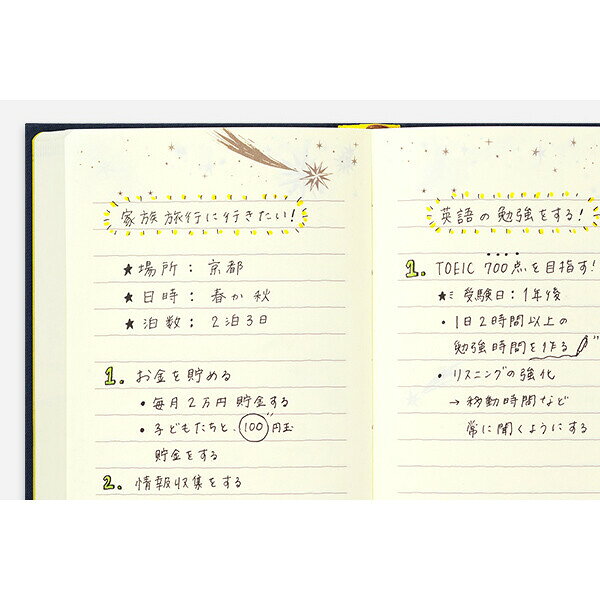 家族旅行に行きたい！
★場所：京都
★日時：春か秋
★泊数：2泊3日
1. お金を貯める
・毎月2万円貯金する
・子どもたちと、100円玉
貯金をする
2. 情報収集をする
英語の勉強をする！
1. TOEIC 700点を目指す！
★ミ 受験日：1年後
・1日2時間以上の
勉強時間を作る
・リスニングの強化
→移動時間など
常に聞くようにする